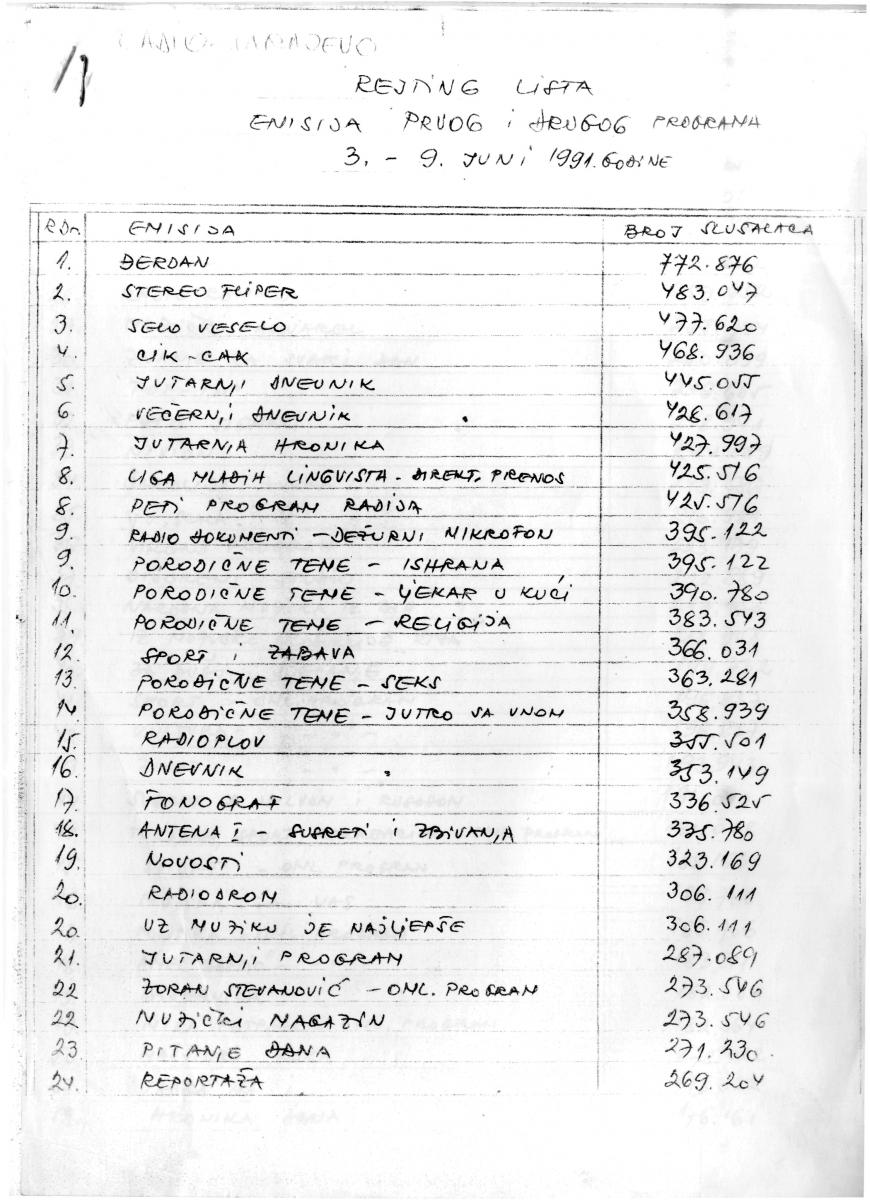 RADIO SARAJEVO
REJTING LISTA
EMISIJA PRVOG i DRUGOG PROGRAMA
3. - 9. JUNI 1991. GODINE
R.Br. EMISIJA BROJ SLUSALACA
1. ĐERDAN 772.876
2. STEREO FLIPER 483.047
3. SELO VESELO 477.620
4. CIK-CAK 468.936
5. JUTARNJI DNEVNIK 445.055
6. VEČERNJI DNEVNIK 428.617
7. JUTARNJA HRONIKA 427.997
8. LIGA MLADIH LINGVISTA - DIREKT. PRENOS 425.516
8. PETI PROGRAM RADIJA 425.516
9. RADIO DOKUMENTI - DEŽURNI MIKROFON 395.122
9. PORODIČNE TEME - ISHRANA 395.122
10. PORODIČNE TEME - LJEKAR U KUĆI 390.780
11. PORODIČNE TEME - RELIGIJA 383.543
12. SPORT i ZABAVA 366.031
13. PORODIČNE TEME - SEKS 363.281
14. PORODIČNE TEME - JUTRO SA UNOM 358.939
15. RADIOPLOV 355.501
16. DNEVNIK 353.149
17. FONOGRAF 336.525
18. ANTENA I - SUSRETI i ZBIVANJA 335.780
19. NOVOSTI 323.169
20. RADIODROM 306.111
20. UZ MUZIKU JE NAJLJEPŠE 306.111
21. JUTARNJI PROGRAM 287.089
22 ZORAN STEVANOVIĆ - OML. PROGRAM 273.546
22 MUZIČKI MAGAZIN 273.546
23. PITANJE DANA 271.230
24. REPORTAŽA 269.204